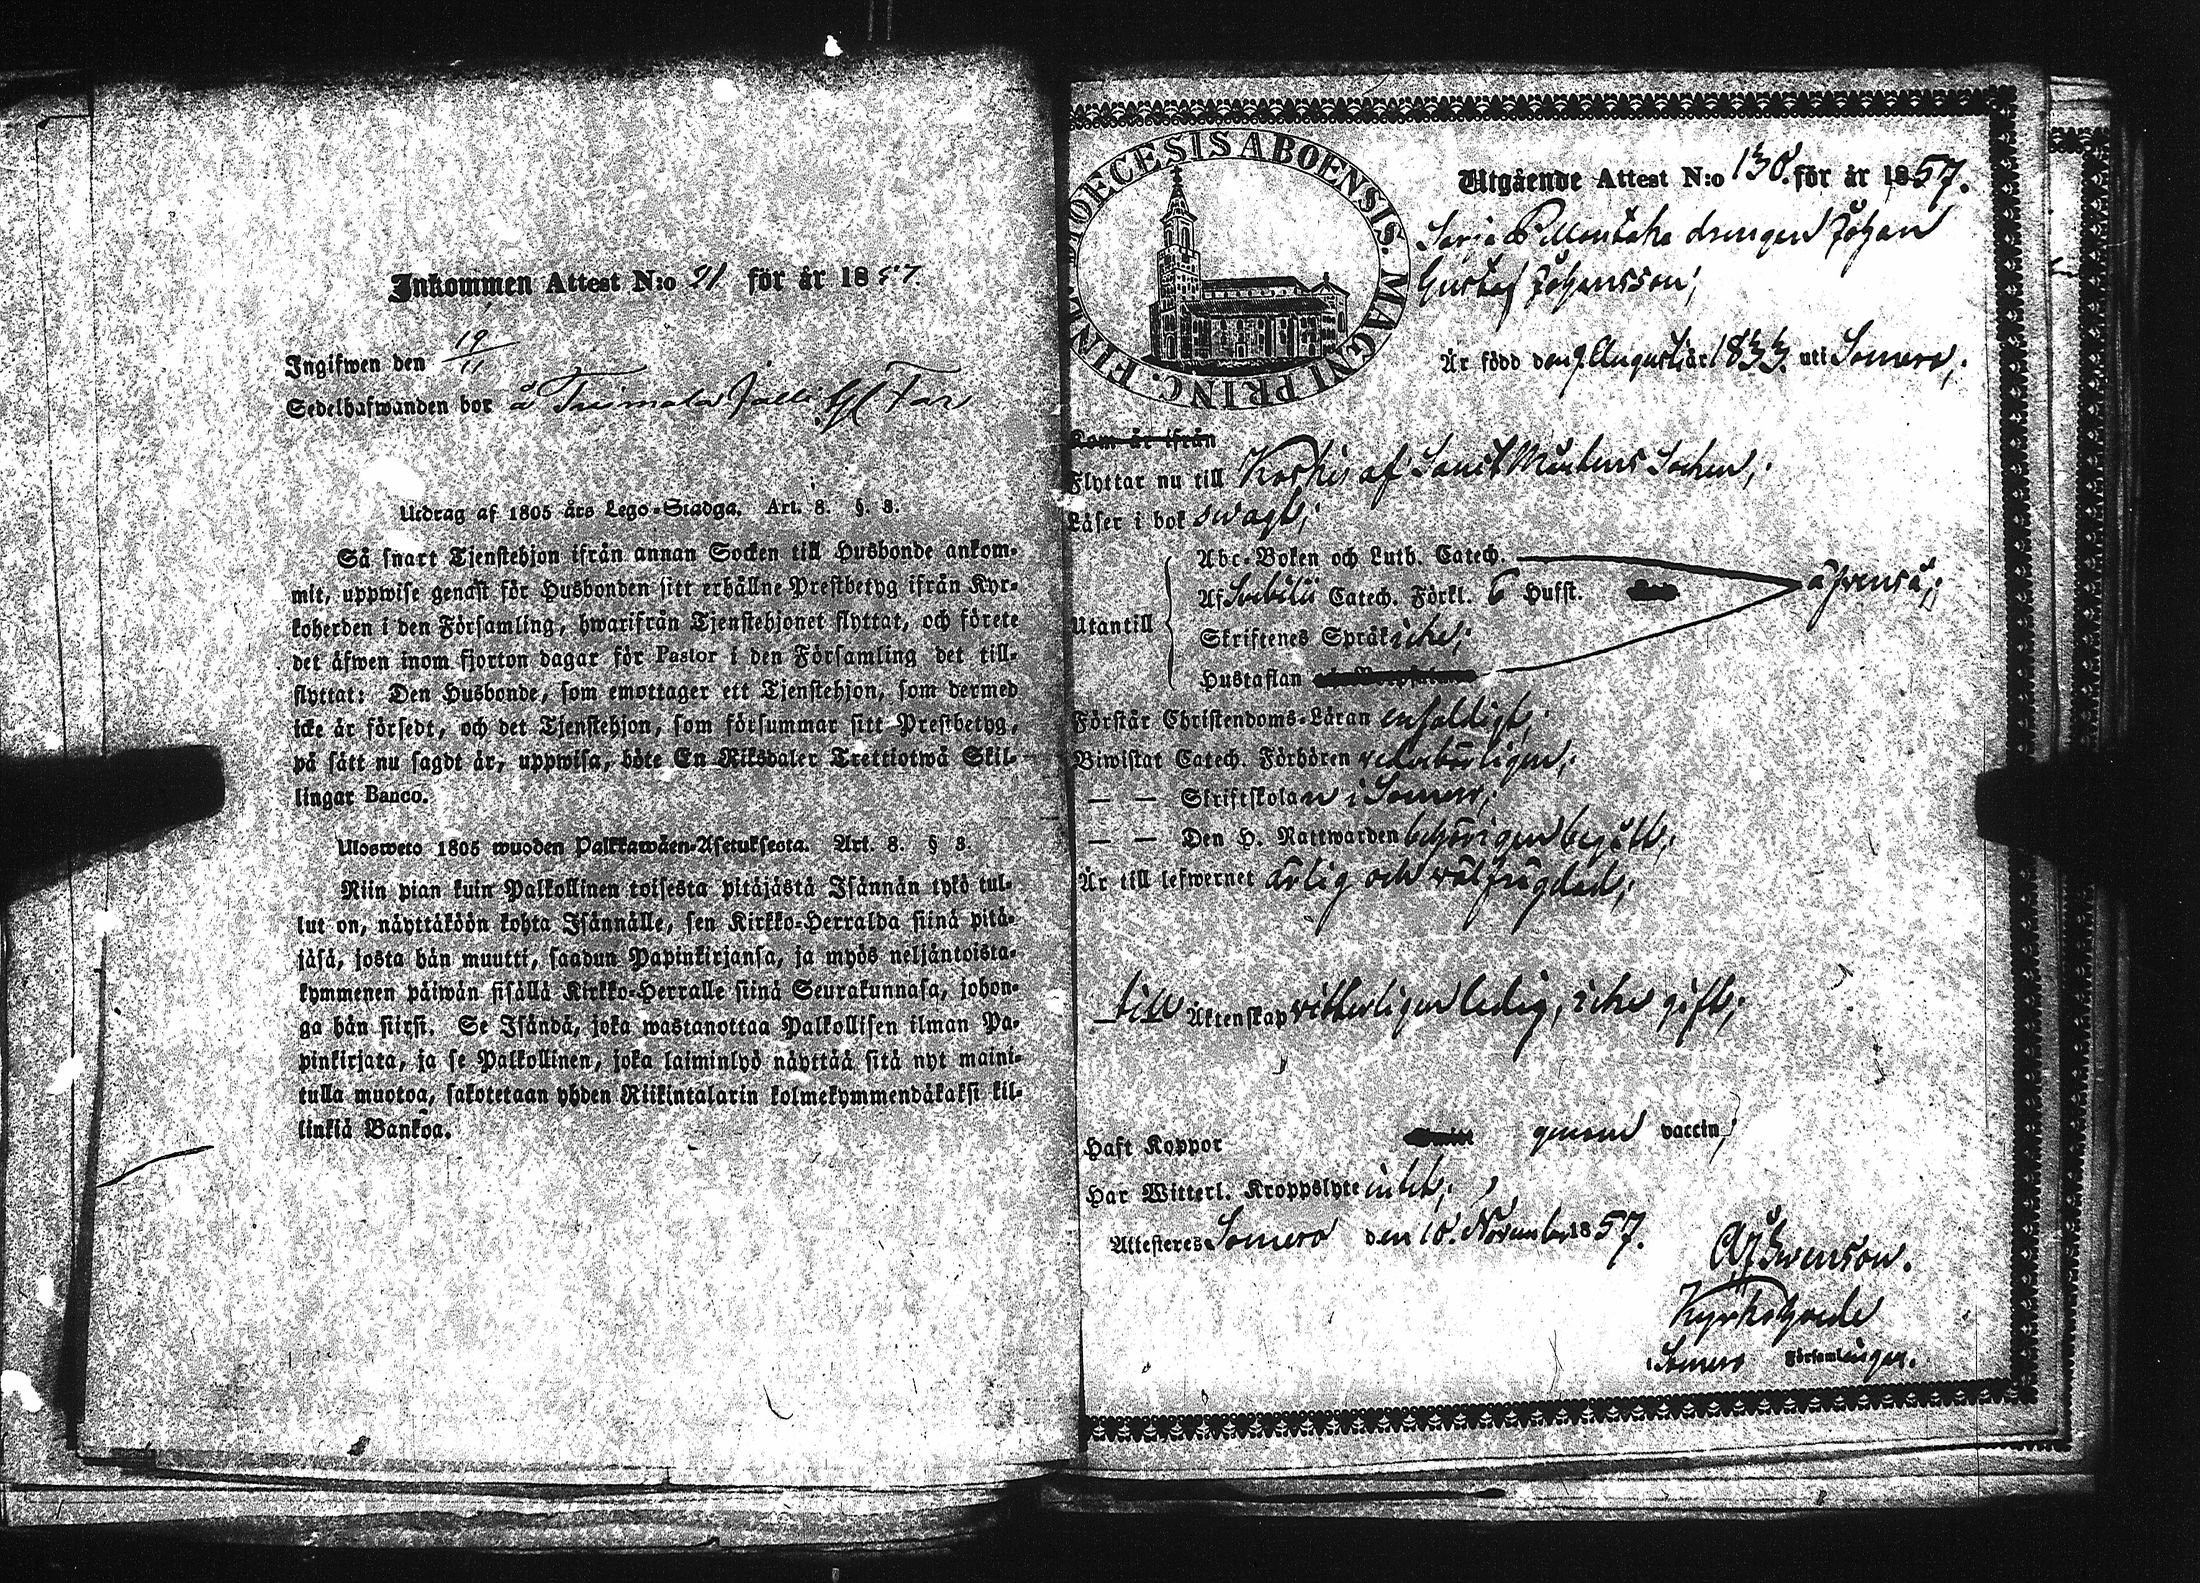 Inkommen Attest N:o 21 för år 1857.
Ingifwen den 19/11
Sedelhafwanden bor å
Utdrag af 1805 års Lego-Stadga. Art. 8. §. 3.
Så snart Tjenstehjon ifrån annan Socken till Husbonde ankom-
mit, uppwise genast för Husbonden sitt erhållne Prestbetyg ifrån Kyr-
koherden i den Församling, hwarifrån Tjenstehjonet flyttat, och förete
det äfwen inom fjorton dagar för Pastor i den Församling det till-
flyttat: Den Husbonde, som emottager ett Tjenstehjon, som dermed
icke är försedt, och det Tjenstehjon, som försummar sitt Prestbetyg,
på sätt nu sagdt är, uppwisa, böte En Riksdaler Trettiotwå Skil-
lingar Banco.
Ulosweto 1805 wuoden Palkkawäen-Asetuksesta. Art. 8. § 3.
Niin pian kuin Palkollinen toisesta pitäjästä Isännän tykö tul-
lut on, näyttäköön kohta Isännälle, sen Kirkko-Herralda siinä pitä-
jäsä, josta hän muutti, saadun Papinkirjansa, ja myös neljäntoista-
kymmenen päiwän sisällä Kirkko-Herralle siinä Seurakunnasa, johon-
ga hän siirsi. Se Isändä, joka wastanottaa Palkollisen ilman Pa-
pinkirjata, ja se Palkollinen, joka laiminlyö näyttää sitä nyt maini-
tulla muotoa, sakotetaan yhden Riikintalarin kolmekymmendäkaksi kil-
linkiä Bankoa.
DIOECESIS ABOENSIS. MAGNI PRINC. FINL.
Utgående Attest N:o 130. för år 1857.
drengen Johan
Gustaf Johansson;
Är född den 9 Augusti år 1833. uti Somero;
Kom är ifrån
Flyttar nu till Koskis af Sanct Mårtens Socken;
Läser i bok swagt;
Utantill
Abc-Boken och Luth. Catech.
Af Svebilii Catech. Förkl. 6 Hufst.
äfvenså;
Skriftenes Språk icke;
Hustaflan
Förstår Christendoms-Läran enfaldigt;
Biwistat Catech. Förhören vederbörligen;
— — Skriftskolan i Somero;
— — Den H. Nattwarden behörigen begått;
Är till lefwernet ärlig och välfrägdad;
till Äktenskap vitterligen ledig, icke gift;
Haft Koppor genom vaccin;
Har Witterl. Kroppslyte intet;
Attesteras Somero den 10. November 1857.
Swenson.
Kyrkoherde
i Somero Församlingen.